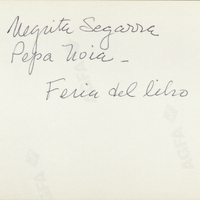 Negrita Segarra
Pepa Noia -
Feria del libro
AGFA
AGFA